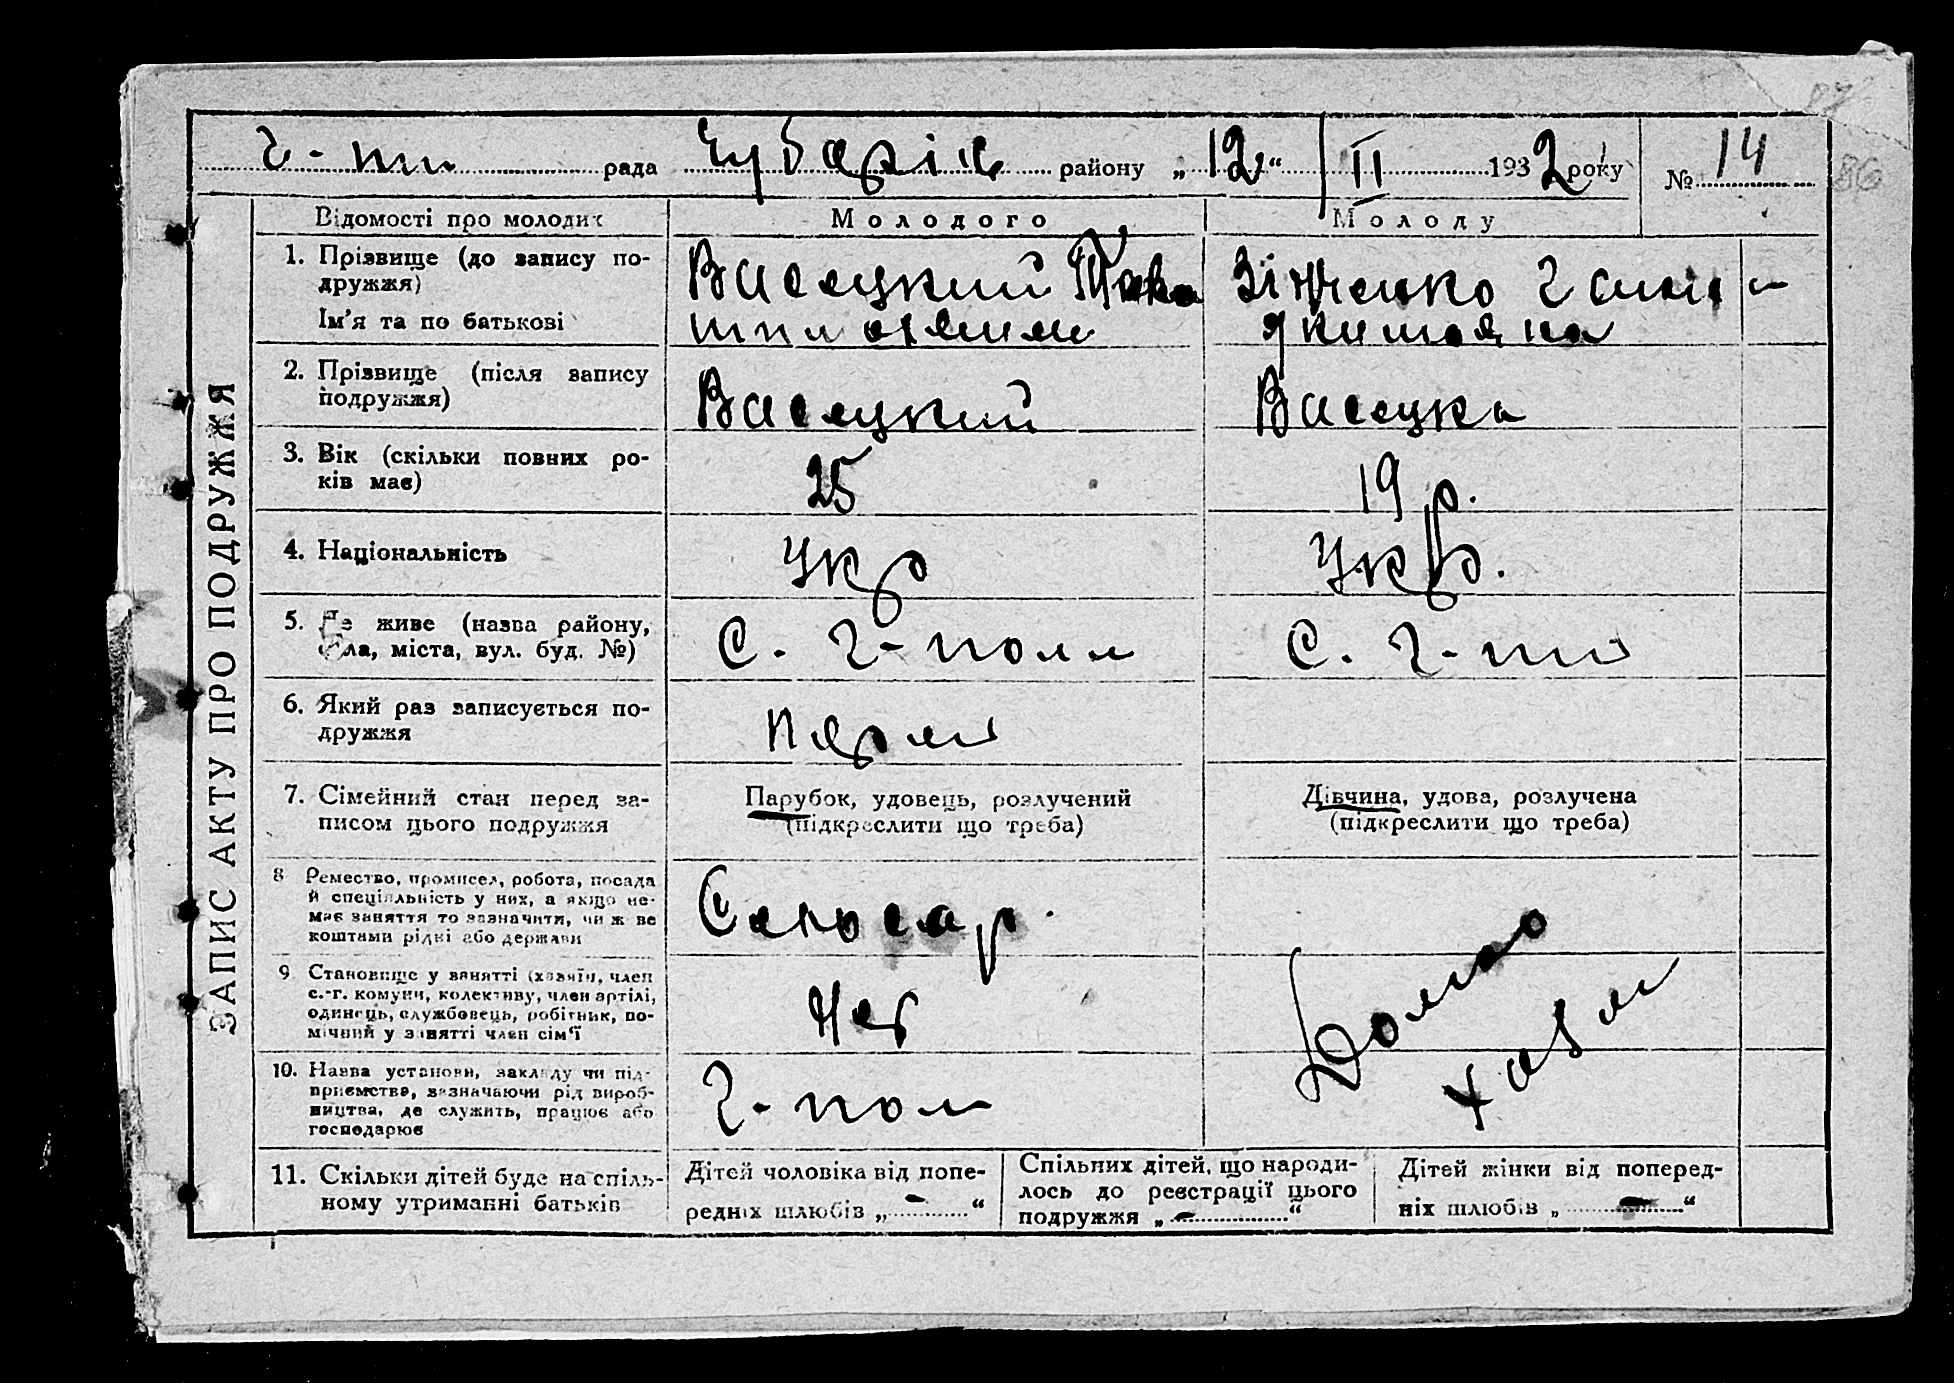 Г-пи рада Чубарів району „12“ /II 1932 року № 14
87
86
ЗАПИС АКТУ ПРО ПОДРУЖЖЯ
Відомості про молодих Молодого Молоду
1. Прізвище (до запису по-
дружжя)
Ім'я та по батькові
Васецкий
Зінченко
Якимовна
2. Прізвище (після запису
подружжя)
Васецкий Васецка
3. Вік (скільки повних ро-
ків має)
25 19 р.
4. Національність Укр Укр.
5. Де живе (назва району,
села, міста, вул. буд. №)
С. Г-поля С. Г-пля
6. Який раз записується по-
дружжя
перши
7. Сімейний стан перед за-
писом цього подружжя
Парубок, удовець, розлучений
(підкреслити що треба)
Дівчина, удова, розлучена
(підкреслити що треба)
8 Ремество, промисел, робота, посада
й спеціяльність у них, а якщо не-
має заняття то зазначити, чи ж ве
коштами рідні або держави
Слюсар.
9 Становище у занятті (хазяїн, член
с.-г. комуни, колективу, член артілі,
одинець, службовець, робітник, по-
мічний у занятті член сім'ї
Домо
хазяй
10. Назва установи, закладу чи під-
приємства, зазначаючи рід вироб-
ництва, де служить, працює або
господарює
Г-пол
11. Скільки дітей буде на спіль-
ному утриманні батьків
Дітей чоловіка від попе-
редніх шлюбів „ - “
Спільних дітей, що народи-
лось до реєстрації цього
подружжя „ - “
Дітей жінки від поперед-
ніх шлюбів „ - “